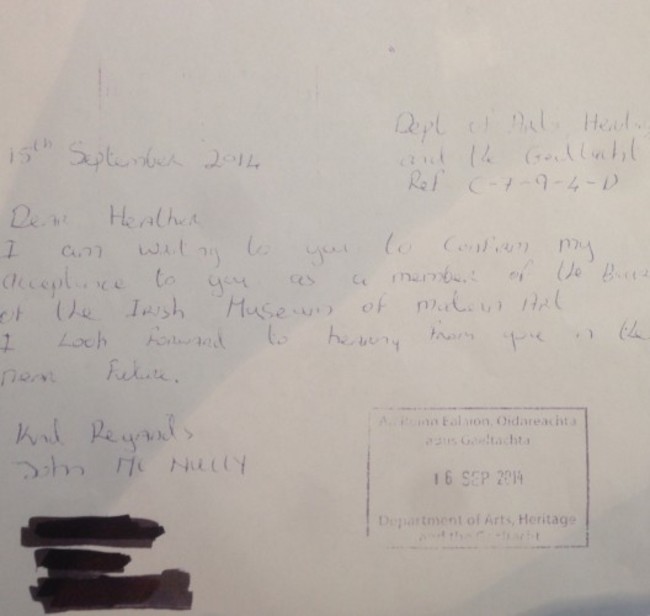 Dept of Arts Herit
and the Gaeltacht
Ref C-7-9-4-D
15th September 2014
Dear Heather
I am writing to you to confirm my
acceptance to you as a member of the
of the Irish Museum of modern Art
I Look forward to hearing from you in the
near future.
Kind Regards
John Mc Nulty
An Roinn Ealaíon, Oidhreachta
agus Gaeltachta
16 SEP 2014
Department of Arts, Heritage
and the Gaeltacht